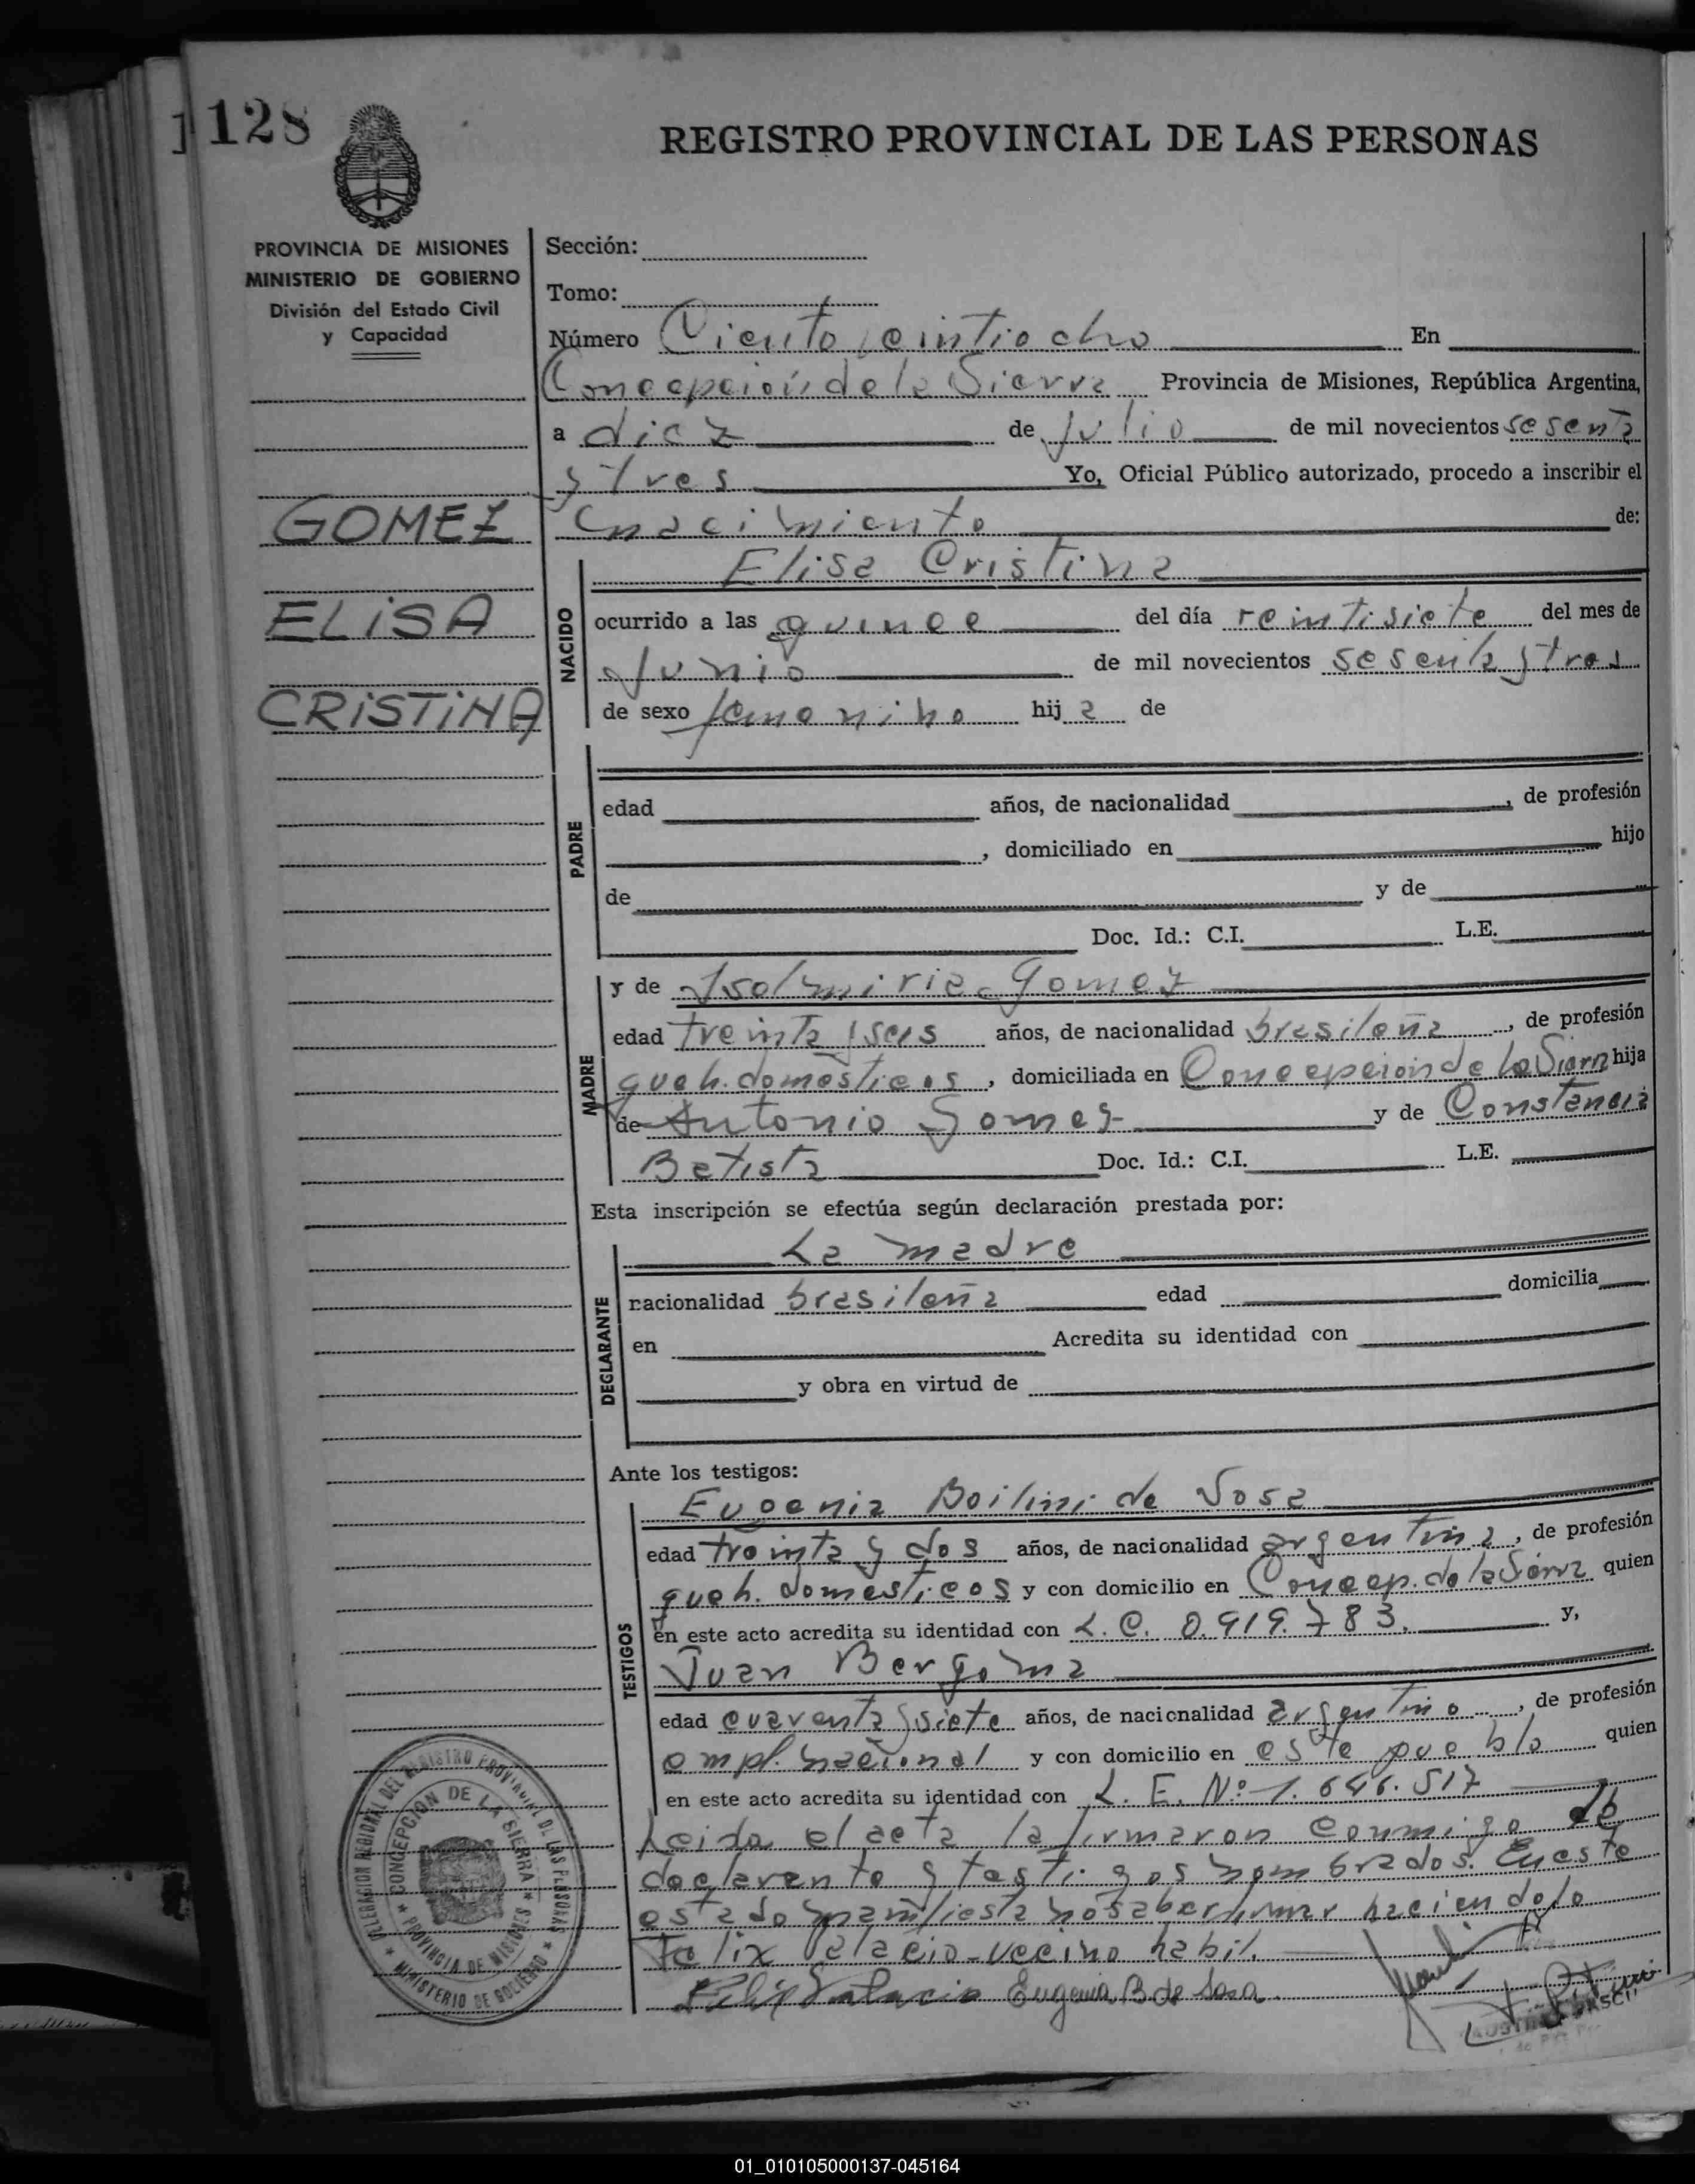 128
REGISTRO PROVINCIAL DE LAS PERSONAS
PROVINCIA DE MISIONES
MINISTERIO DE GOBIERNO
División del Estado Civil
y Capacidad
GOMEZ
ELISA
CRISTINA
Sección:
Tomo:
Número Ciento veintiocho En
Concepción de la Sierra Provincia de Misiones, República Argentina,
a diez de Julio de mil novecientos sesenta
y tres Yo, Oficial Público autorizado, procedo a inscribir el
nacimiento de:
NACIDO
Elisa Cristina
ocurrido a las quince del día veintisiete del mes de
Junio de mil novecientos sesenta y tres
de sexo femenino hija de
PADRE
edad años, de nacionalidad , de profesión
, domiciliado en hijo
de y de
Doc. Id.: C.I. L.E.
MADRE
y de Isolmiria Gomez
edad treinta y seis años, de nacionalidad brasileña , de profesión
queh. domésticos , domiciliada en Concepción de la Sierra hija
de Antonio Gomes y de Constancia
Batista Doc. Id.: C.I. L.E.
Esta inscripción se efectúa según declaración prestada por:
DECLARANTE
La madre
nacionalidad brasileña edad domicilia
en Acredita su identidad con
y obra en virtud de
Ante los testigos:
TESTIGOS
Eugenia Boilini de Sosa
edad treinta y dos años, de nacionalidad argentina , de profesión
queh. domesticos y con domicilio en Concep. de la Sierra quien
en este acto acredita su identidad con L. C. 0.919.783. y,
Juan Bergoma
edad cuarenta y siete años, de nacionalidad argentino , de profesión
empl. nacional y con domicilio en este pueblo quien
en este acto acredita su identidad con L. E. Nº 1.646.517
Leida el acta la firmaron conmigo la
declarante y testigos nombrados. En este
estado manifiesta no saber firmar haciendolo
Felix Palacio - vecino habil.
Felix Palacio Eugenia B de Sosa
DELEGACION REGIONAL DEL REGISTRO PROVINCIAL DE LAS PERSONAS
CONCEPCION DE LA SIERRA
PROVINCIA DE MISIONES
MINISTERIO DE GOBIERNO
01_010105000137-045164